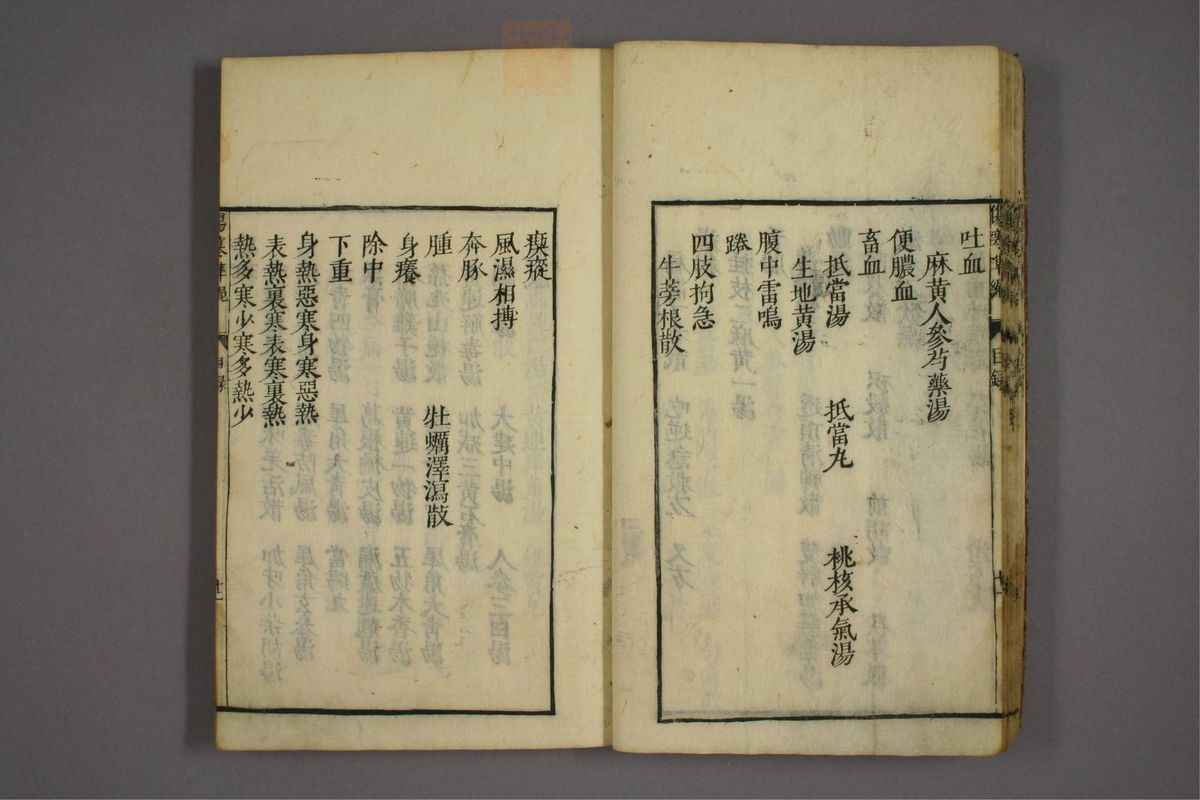 吐血
麻黄人參芍藥湯
便膿血
畜血
抵當湯 抵當丸 桃核承氣湯
生地黄湯
腹中雷鳴
踡
四肢拘急
牛蒡根散
目錄
瘈瘲
風濕相搏
奔豚
腫 牡蠣澤瀉散
身癢
除中
下重
身熱惡寒身寒惡熱
表熱裏寒表寒裏熱
熱多寒少寒多熱少